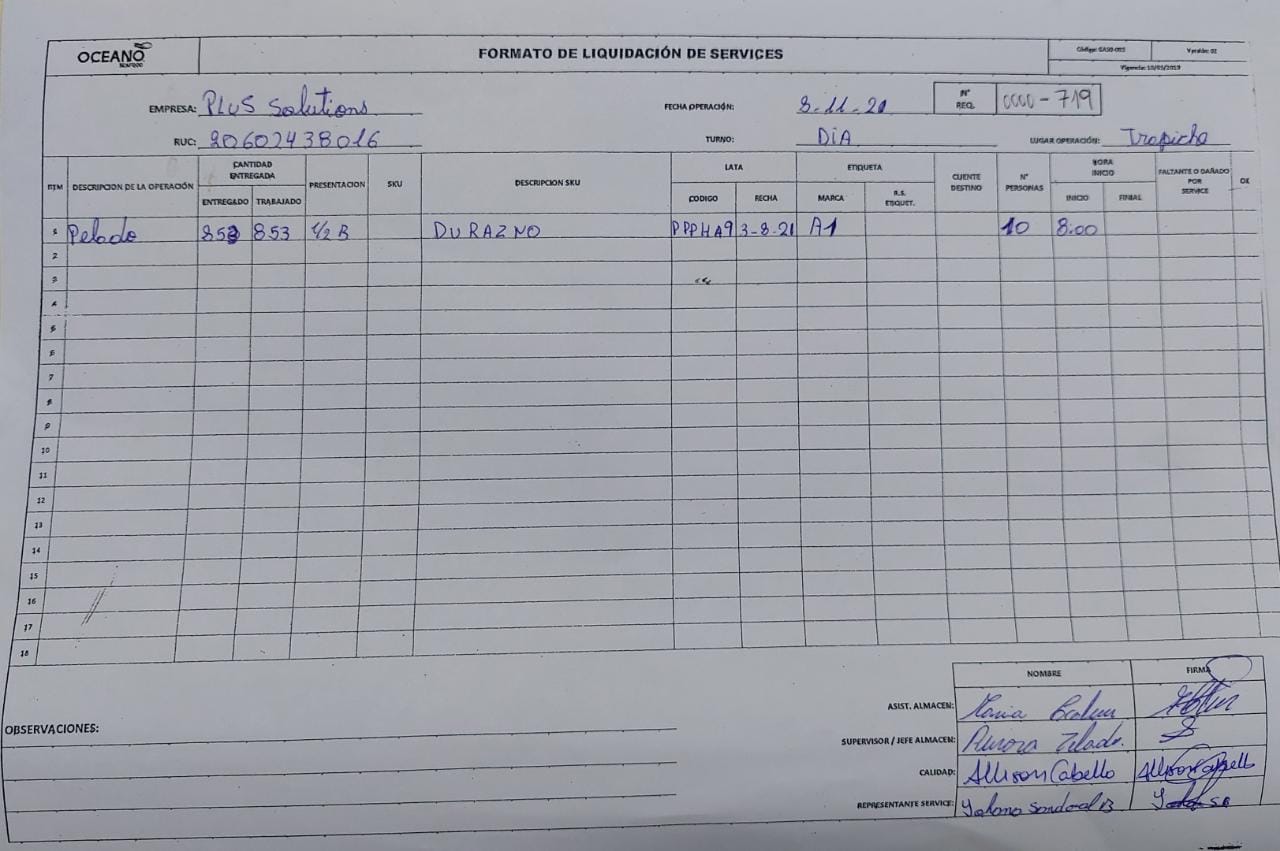 OCEANO
SEAFOOD
FORMATO DE LIQUIDACIÓN DE SERVICES
Código: GA50-003
Versión: 02
Vigencia: 10/05/2019
EMPRESA: PLUS Solutions
FECHA OPERACIÓN: 8-11-21
N° REQ. 0000-719
RUC: 20602438016
TURNO: DIA
LUGAR OPERACIÓN: Trapiche
ITM DESCRIPCION DE LA OPERACIÓN CANTIDAD ENTREGADA PRESENTACION SKU DESCRIPCION SKU LATA ETIQUETA CLIENTE DESTINO N° PERSONAS HORA INICIO FALTANTE O DAÑADO POR SERVICE OK
ENTREGADO TRABAJADO CODIGO FECHA MARCA R.S. ETIQUET. INICIO FINAL
1 Pelado 853 853 1/2 B DURAZNO PPPHA9 3-8-21 A1 10 8.00
2
3
4
5
6
7
8
9
10
11
12
13
14
15
16
17
18
NOMBRE FIRMA
ASIST. ALMACEN: Maria
OBSERVACIONES:
SUPERVISOR / JEFE ALMACEN: Aurora
CALIDAD: Allison Cabello Allison Cabello
REPRESENTANTE SERVICE: Yolano Sandoval B